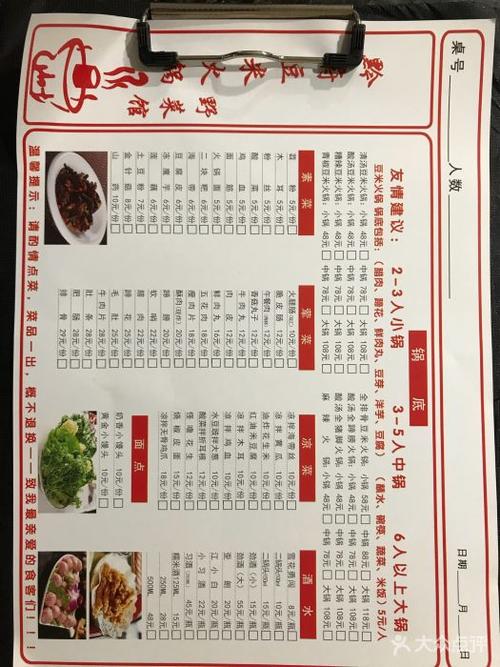 桌号 人数 日期 月 日
豆米火锅
野菜馆
锅底
友情建议: 2-3人小锅 3-5人中锅 6人以上大锅
豆米火锅 锅底包括:(腊肉、蹄花、鲜肉丸、豆芽、洋芋、豆腐)(蘸水、碗筷、蔬菜、米饭)5元/人
清汤豆米火锅:小锅 48元 中锅 78元 大锅 108元
酸汤豆米火锅:小锅 48元 中锅 78元 大锅 108元
糟辣豆米火锅:小锅 48元 中锅 78元 大锅 108元
青椒豆米火锅:小锅 48元 中锅 78元 大锅 108元
全排骨豆米火锅:小锅 58元 中锅 88元 大锅 118元
酸汤全蹄膀火锅:小锅 48元 中锅 78元 大锅 108元
酸汤全猪脚火锅:小锅 48元 中锅 78元 大锅 108元
麻辣火锅:小锅 48元 中锅 78元 大锅 108元
素菜
粉 5元/份
木耳 5元/份
酸菜 5元/份
鸡血 5元/份
面筋 5元/份
火锅面 5元/份
二块粑 6元/份
海带 6元/份
豆腐皮 6元/份
冻魔芋 6元/份
莲 6元/份
土豆粉 7元/份
金针菇 8元/份
山药 10元/份
荤菜
火腿肠 10元/份
脆皮肠 12元/份
午餐肉 12元/份
香菇丸子 12元/份
牛肉丸 12元/份
肉皮 12元/份
鲜肉丸 16元/份
五花肉 18元/份
瘦肉片 18元/份
酥肉 18元/份
蹄膀 20元/份
软哨 22元/份
腊肉 25元/份
毛肚 25元/份
牛肉片 28元/份
肚条 28元/份
肥肠 28元/份
排骨 29元/份
凉菜
凉拌海带丝 10元/份
凉拌黄瓜 10元/份
油炸花生米 10元/份
红油米豆腐 10元/份
凉拌鸡血 10元/份
凉拌木耳 10元/份
水豆豉拌大葱 10元/份
酸菜拌折耳根 10元/份
饯塘花生 12元/份
烧椒皮蛋 15元/份
凉拌无骨鸡爪 18元/份
面点
奶香小馒头 10元/份
黄金小馒头 10元/份
酒水
雪花勇闯 8元/瓶
二锅头 10元/瓶
二锅头 15元/瓶
劲酒(小) 15元/瓶
劲酒(大) 55元/瓶
歪朗 20元/瓶
江小白 20元/瓶
小习酒 22元/瓶
习酒 45元/瓶
糯米酒125ML 15元
250ML 28元
500ML 48元
温馨提示:请酌情点菜,菜品一出,概不退换——致我最亲爱的食客们!!!
大众点评